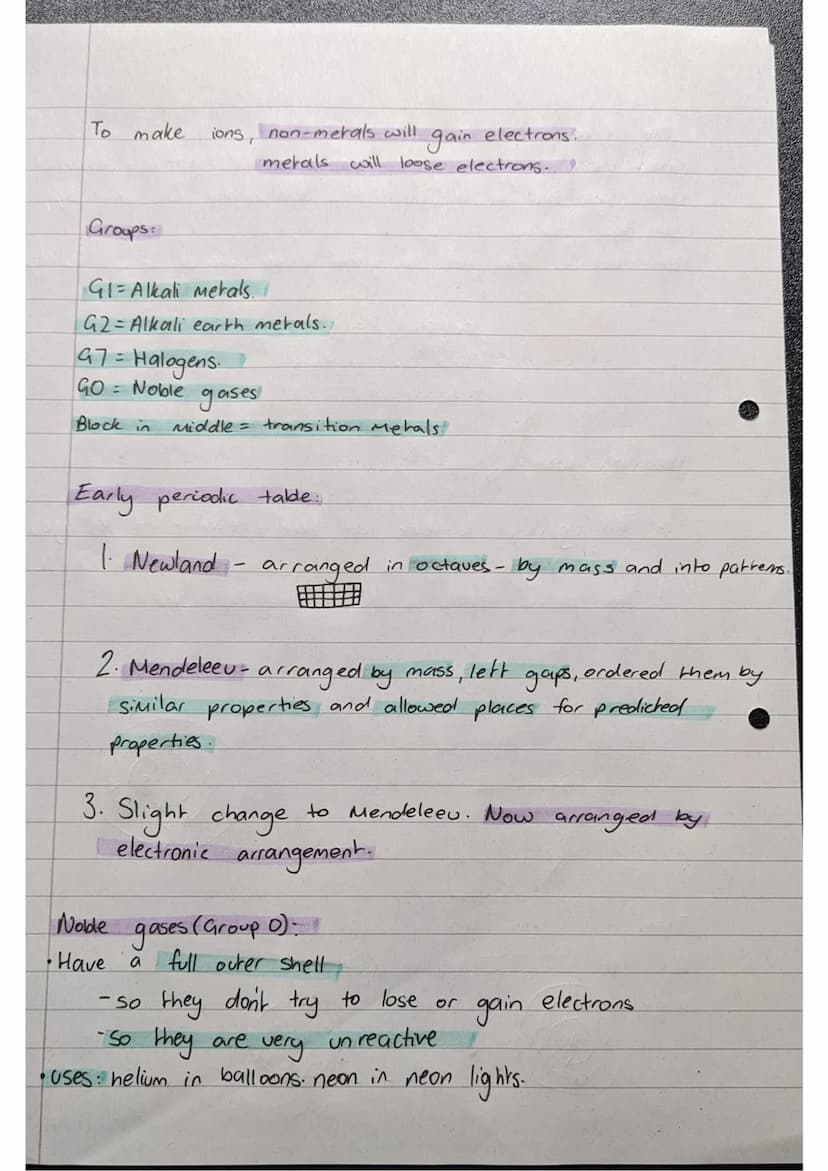 To make ions, non-metals will gain electrons.
metals will loose electrons.
Groups:
G1 = Alkali metals.
G2 = Alkali earth metals.
G7 = Halogens.
G0 = Noble gases
Block in middle = transition metals
Early periodic table:
1. Newland - arranged in octaves - by mass and into patterns.
2. Mendeleev - arranged by mass, left gaps, ordered them by
similar properties and allowed places for predicted
properties.
3. Slight change to Mendeleev. Now arranged by
electronic arrangement.
Noble gases (Group 0):-
• Have a full outer shell
- so they don't try to lose or gain electrons
- so they are very unreactive
• uses: helium in balloons. neon in neon lights.